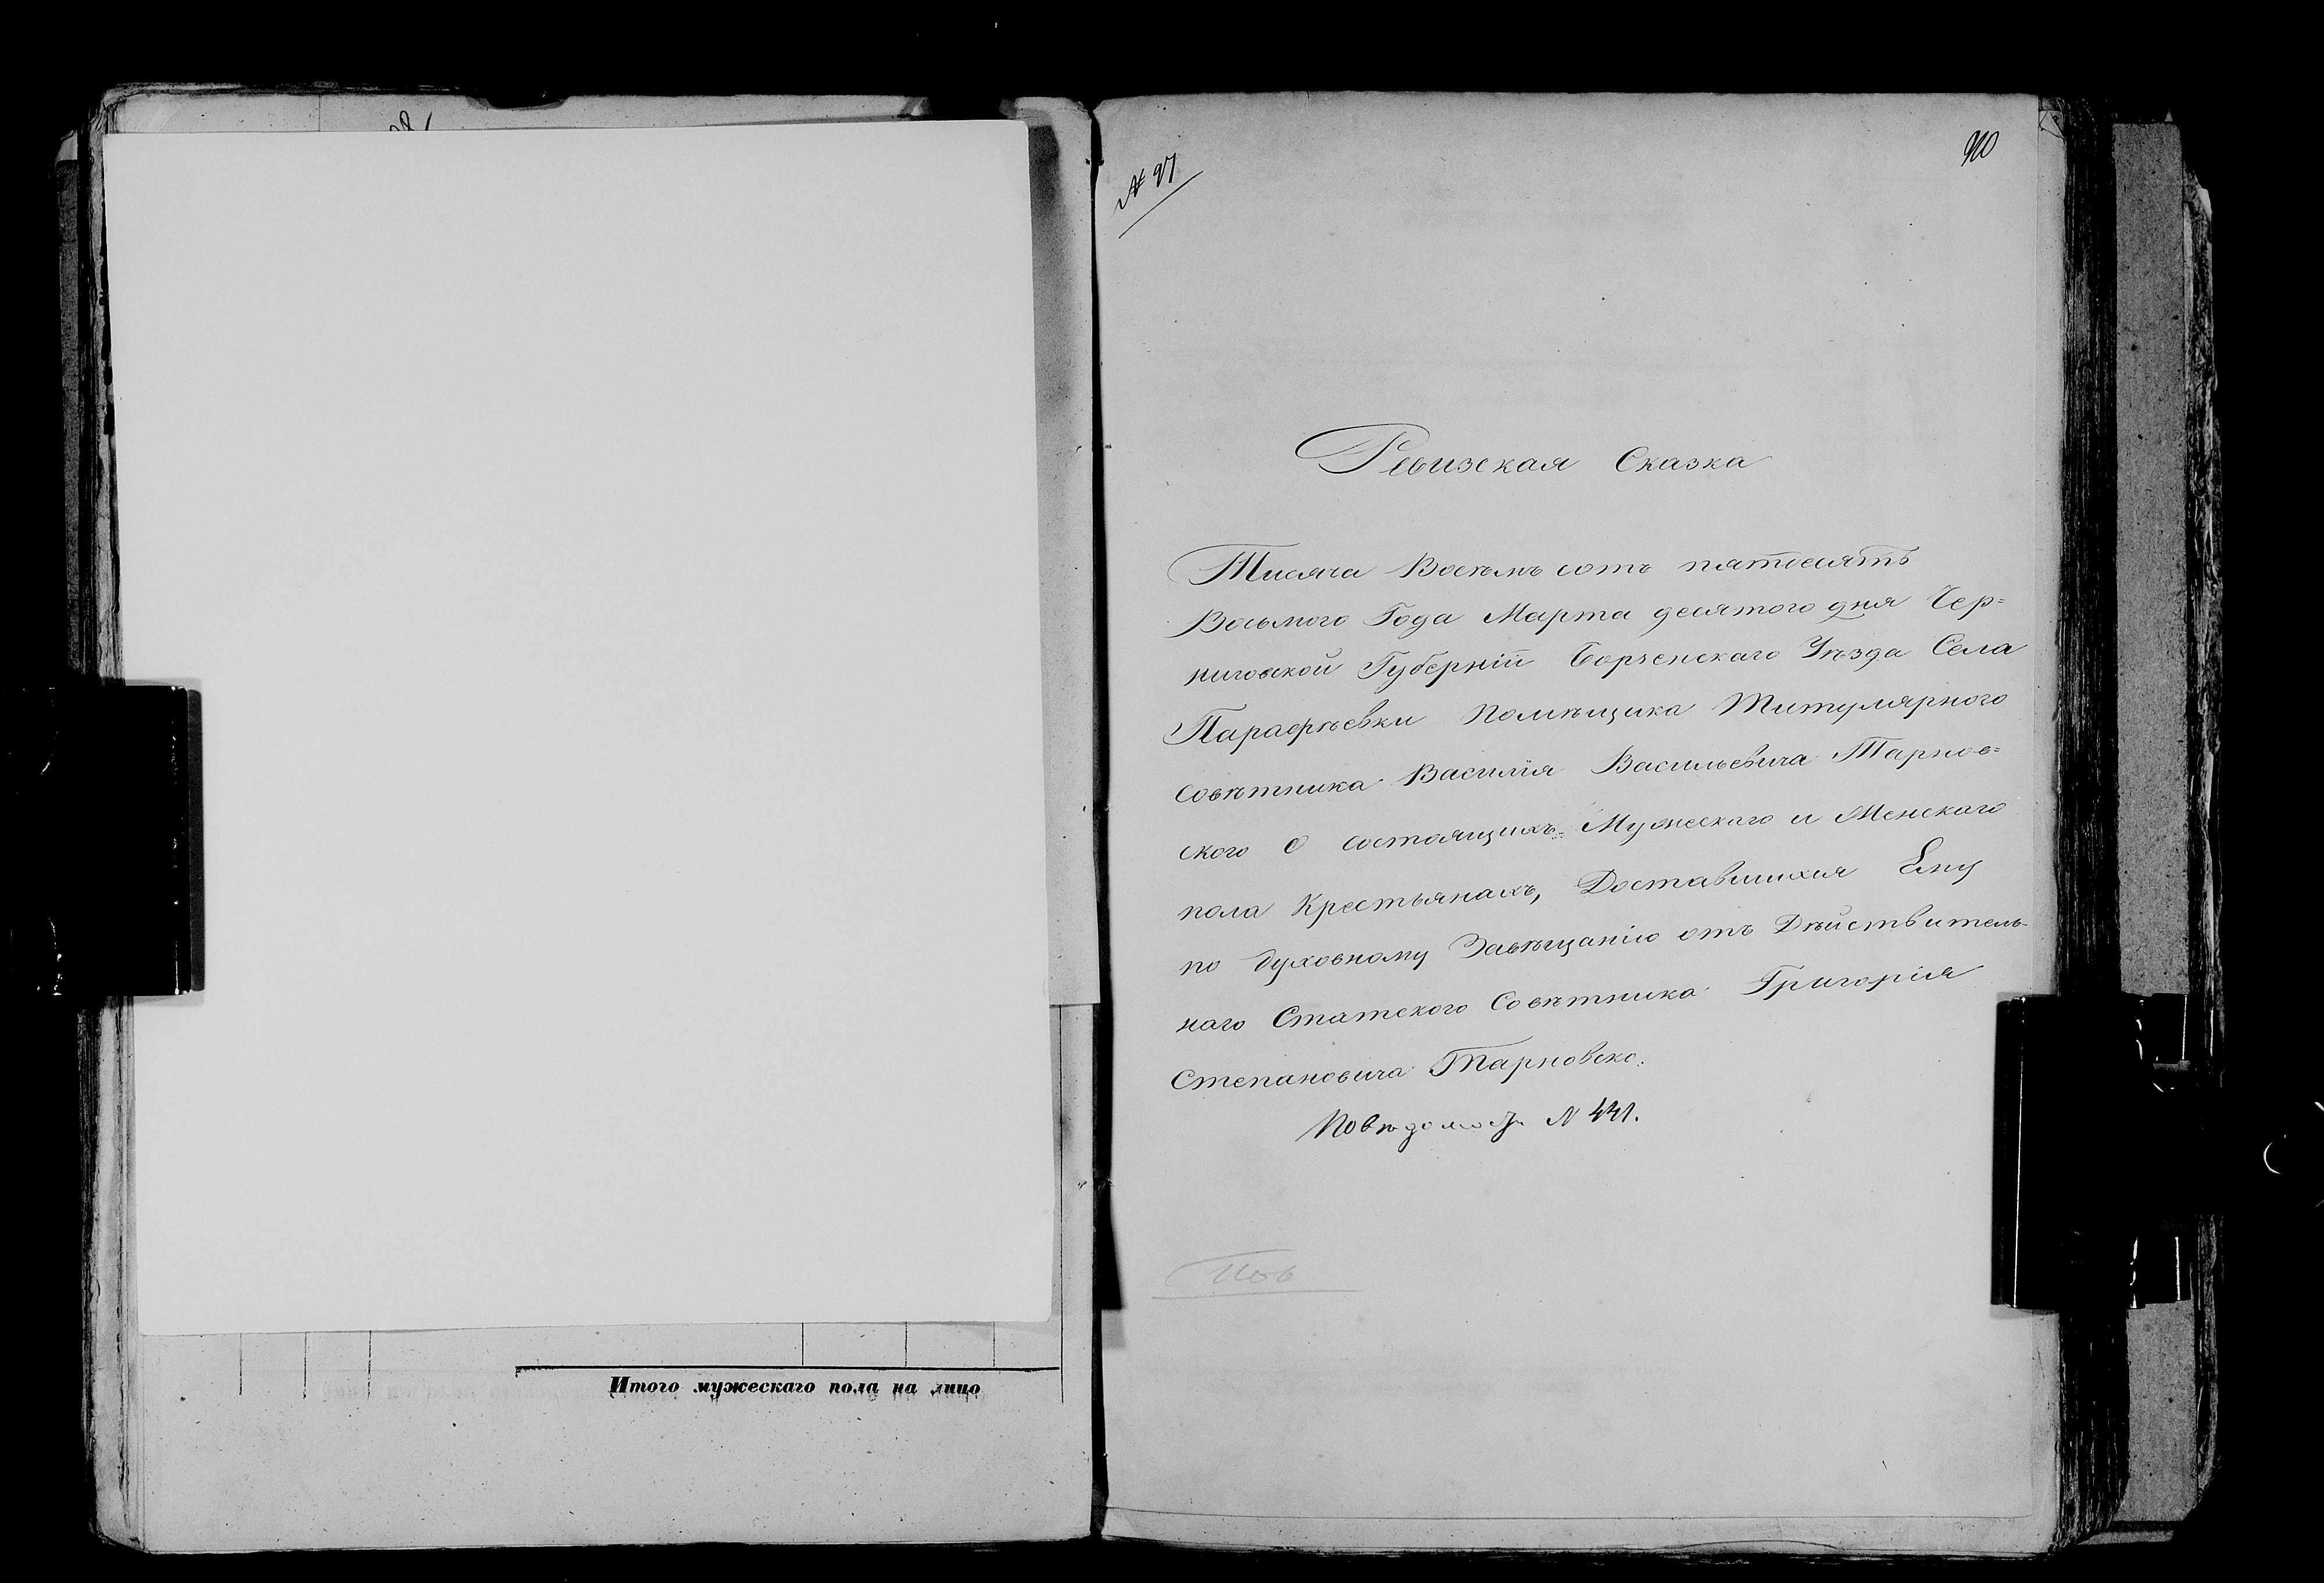 Итого мужескаго пола на лицо
№ 97
Ревизская Сказка
Тисяча Восемь сотъ пятдесятъ
Восьмого Года Марта десятого дня Чер=
ниговской Губерніи Борзенскаго Уѣзда Села
Парафѣевки Помѣщика Титулярного
Совѣтника Василія Васильевича Тарнов=
ского О состоящихъ Мужескаго и Женскаго
пола Крестьянахъ, Доставшихся Ему
по духовному Завѣщанію отъ Дѣйствитель-
наго Статского Совѣтника Григорія
Степановича Тарновско:
По вѣдомости N 441.
Пов